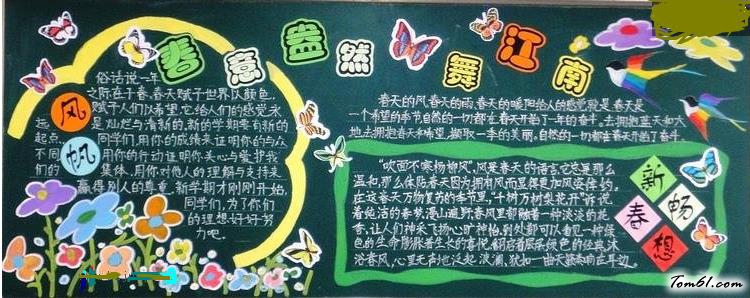 春意盎然 舞江南
风
帆
俗话说一年
之际在于春,春天赋于世界以颜色,
赋于人们以希望,它给人们的感觉永
远是灿烂与清新的,新的学期要有新的
起点,同学们,用你的成绩来证明你的与众
不同,用你的行动证明你关心与爱护我
们的集体,用你对他人的理解与支持来
赢得别人的尊重,新学期才刚刚开始,
同学们,为了你们
的理想好好努
力吧。
春天的风,春天的雨,春天的暖阳给人的感觉就是春天是
一个希望的季节自然的一切都在春天开始了一年的奋斗。去拥抱蓝天和大
地去拥抱春天和希望,撷取一季的美丽。自然的一切都在春天开启了奋斗。
"吹面不寒杨柳风",风是春天的语言,它总是那么
温和,那么体贴春天因为拥有风而显得更加风姿绰约。
在这春天万物复苏的季节里,"千树万树梨花开"诉说
着纯洁的春状,漫山遍野春风里都融着一种淡淡的花
香,让人们神采飞扬心旷神怡,到处都可以看见一种绿
色的生命膨胀着生长的喜悦,翻启着层层绿色的经典沐
浴春风,心里无声也泛起波澜,犹如一曲天籁奏响在耳边。
新
畅
春
想
Tom61.com